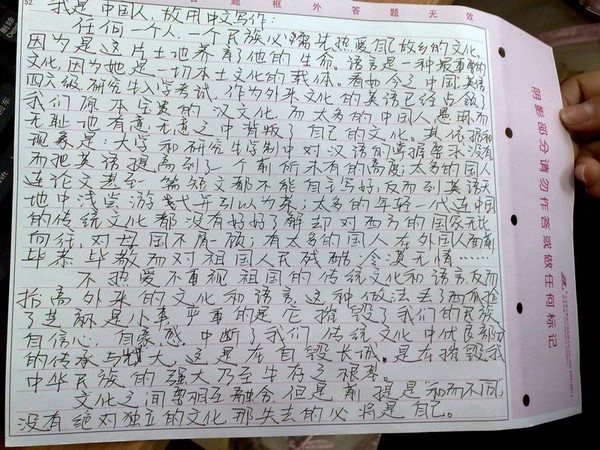 52 答题框外答题无效
我是中国人,故用中文写作:
任何一个人,一个民族必须先热爱自己故乡的文化,
因为是这片土地养育他的生命。语言是一种最重要的
文化,因为她是一切本土文化的载体。看如今之中国:英语
四六级、研究生入学考试,作为外来文化的英语已经占领了
我们原本完美的汉文化,而太多的中国人愚昧而
无耻地有意无意之中背叛了自己的文化。其依据和
现象是:大学和研究生学制中对汉语的掌握要求没有
而把英语提高到了一个前所未有的高度;太多的国人
连论文甚至一篇短文都不能自主写好,反而到英语天
地中浅尝游弋并引以为荣;太多的年轻一代连中国
的传统文化都没有好好了解却对西方的国家无比
向往,对母国不屑一顾;有太多的国人在外国人面前
毕恭毕敬而对祖国人民残酷、冷漠无情……
不热爱不重视祖国的传统文化和语言,反而
抬高外来的文化和语言,这种做法丢了西瓜捡
了芝麻是小事,严重的是它摧毁了我们的民族
自信心、自豪感,中断了我们传统文化中优良部分
的传承与壮大,这是在自毁长城,是在摧毁我
中华民族的强大乃至生存之根基。
文化之间要相互融合,但是前提是“和而不同”,
没有绝对独立的文化,那失去的必将是自己。
阴影部分请勿作答或做任何标记